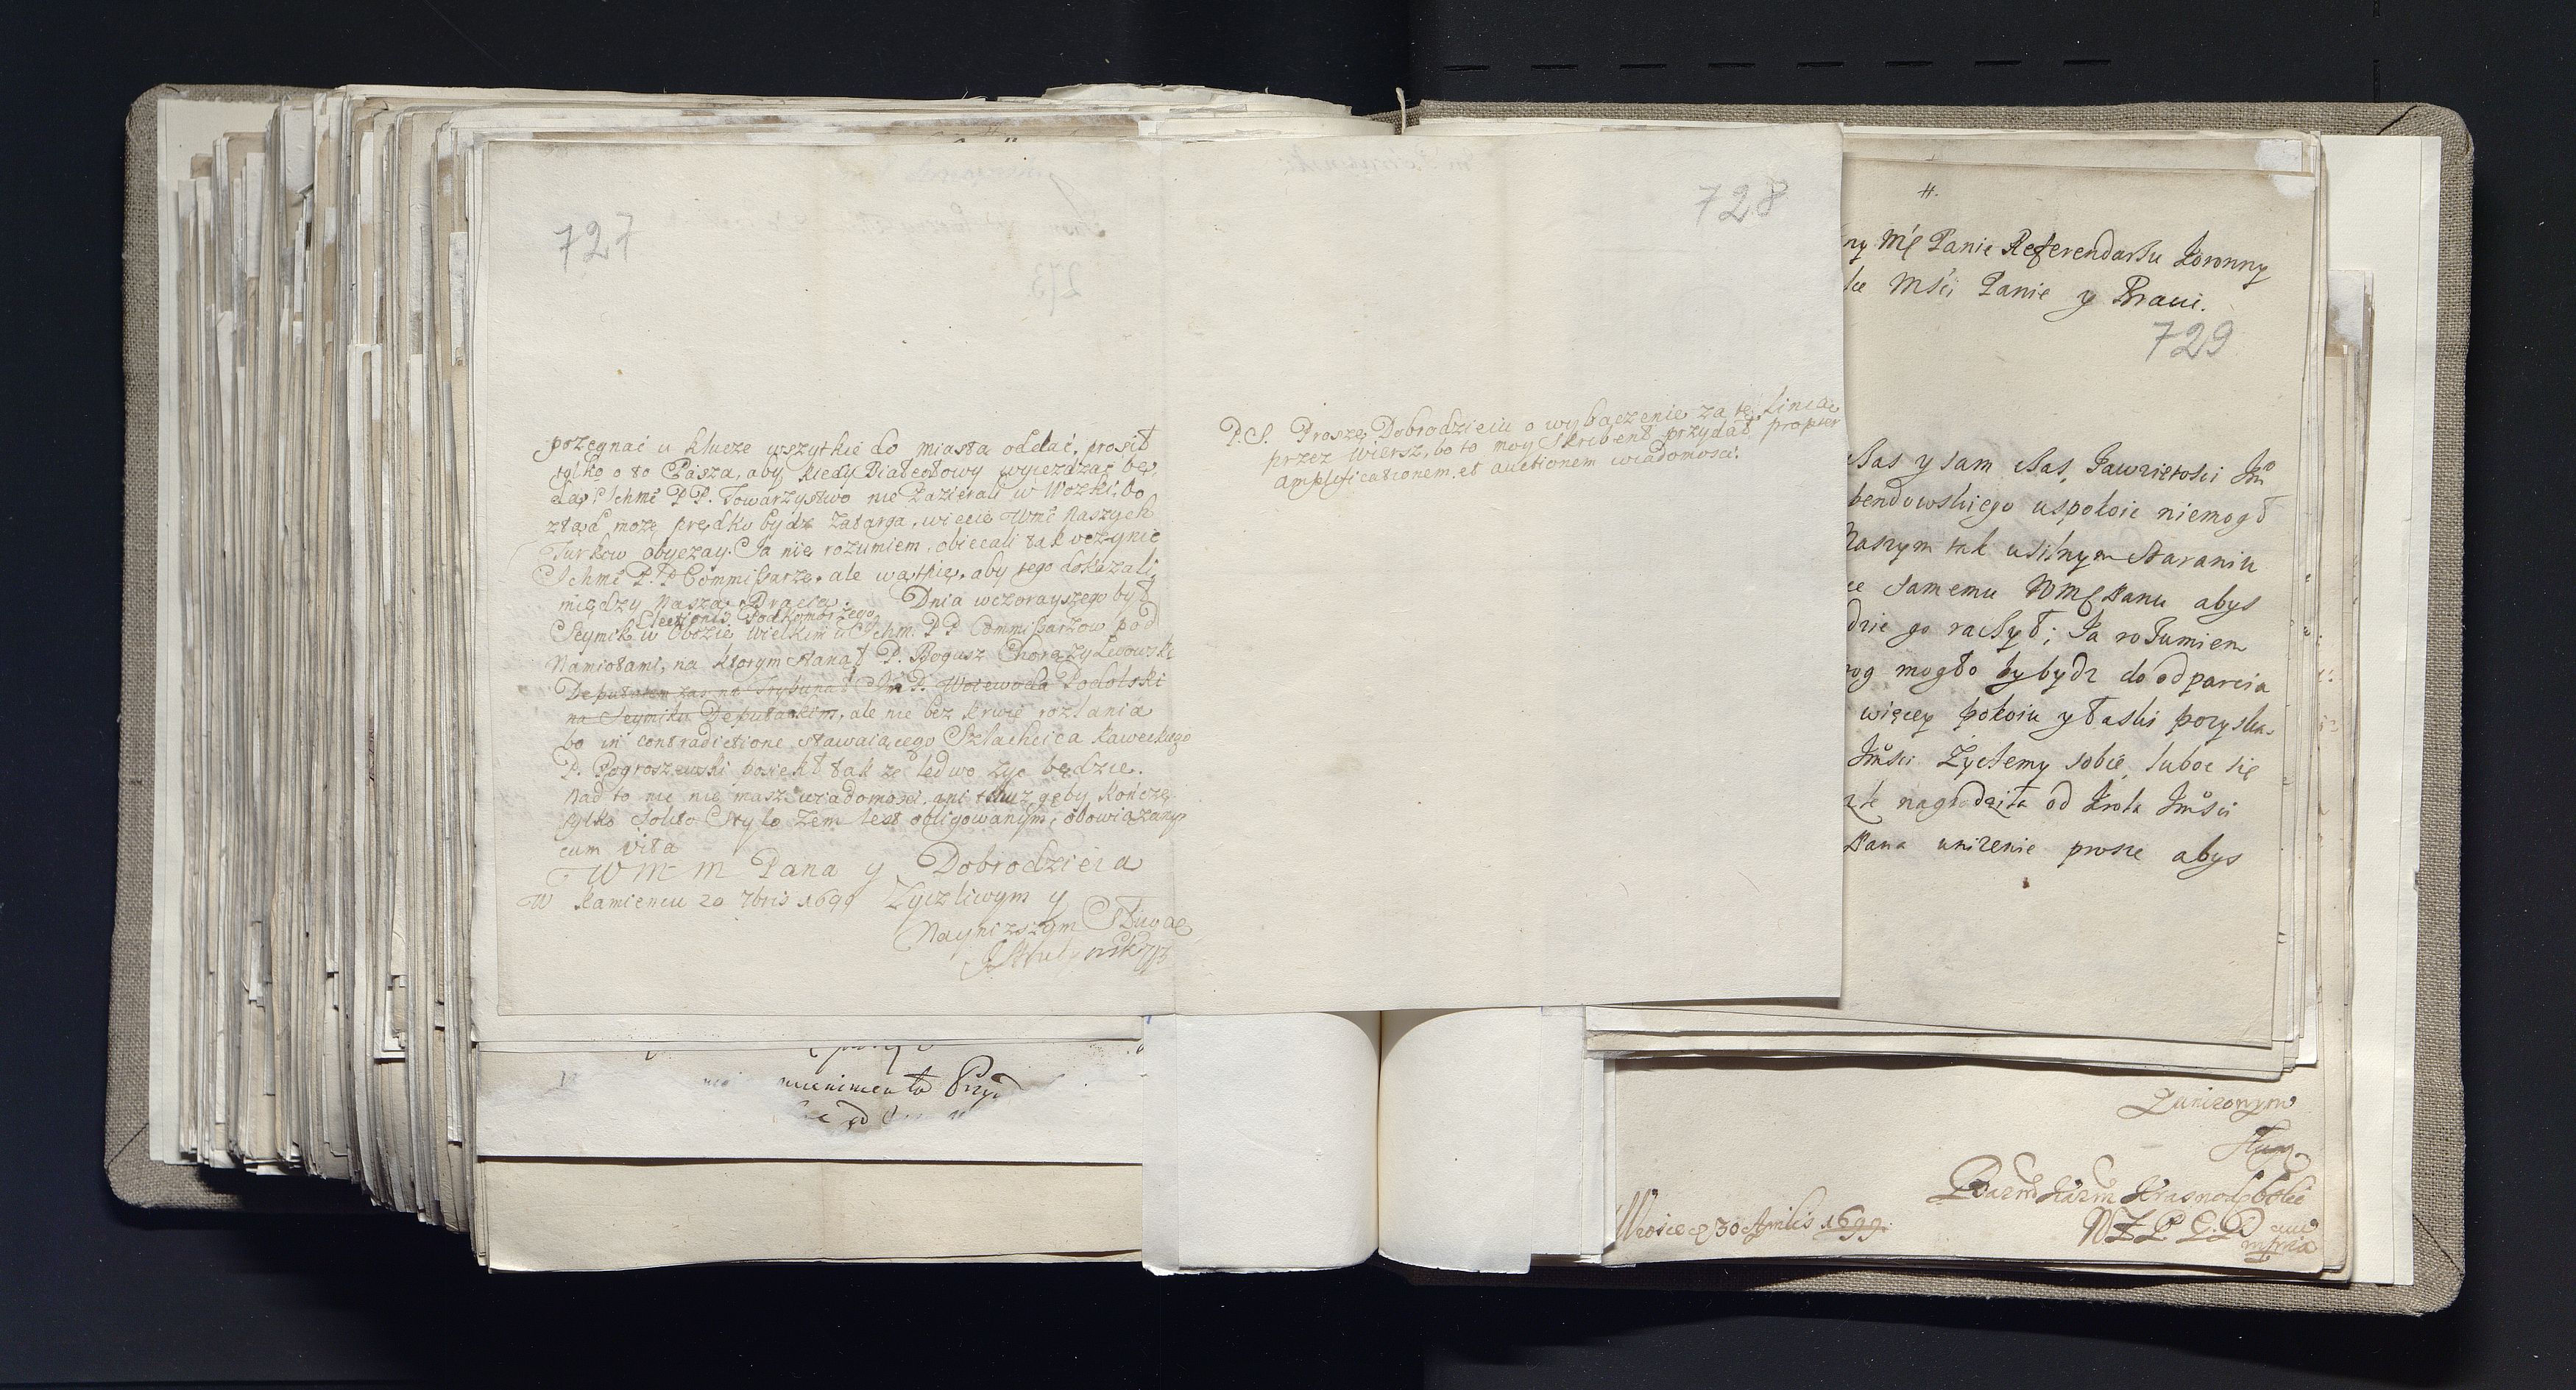 727
pozegnać u klucze wszytkie do miasta oddać, prosił
tylko o to Basza, aby kiedy Białegłowy wyiezdzac bę
da Ichmć PP. Towarzystwo nie zazierali w Wozki, bo
ztąd moze prędko bydz zatarga, wiecie Wmć naszych
Turkow obyczay. Ja nie rozumiem, obiecali tak uczynic
Ichmć P.P Commissarze, ale wątpię, aby tego dokazali
między naszą Bracią. Dnia wczorayszego był
Electionis Podkomorzego
Seymik w Obozie Wielkim u Ichm. PP Commissarzow pod
Namiotami, na ktorym stanął P. Bogusz Chorązy Lwowski
Deputatem zas na Trybunał Im P. Woiewoda Podolski
na Seymiku Deputackim, ale nie bez krwie rozlania
bo in contradictione stawaiącego Szlachcica Kaweckiego
P. Pogroszewski posiekł tak ze ledwo zyc będzie.
Nad to nic nie masz wiadomosci, ani tchuz gęby kończę
tylko solito stylo zem iest obligowanym, obowiązanym
cum vita
W M m Pana y Dobrodzieia
W Kamiencu 20 7bris 1699 Zyczliwym y
Naynizszym Sługą
728
P.S. Proszę Dobrodzieiu o wybaczenie za tę Linią
przez Wiersz, bo to moy Skribent przydał propter
amplificationem et auctionem wiadomosci.
#.
ny Mę Panie Referendarzu Koronny
Msci Panie y Bracie.
729
Nas y sam czas, Zawziętosci Im
bendowskiego uspokoic niemogł
Naszym tak usilnym staraniu
ce samemu WMę Panu abys
dzie go raczył; Ja rozumiem
rog mogło by bydz do odparcia
więcey pokoiu y łaski pozyska.
Imsci Zyczemy sobie, luboc się
nagrodziła od Krola Imsci
Pana unizenie prosze abys
munimenta Przy
Zunizonym
Sługą
Krasnodębski
30 Aprilis 1699.